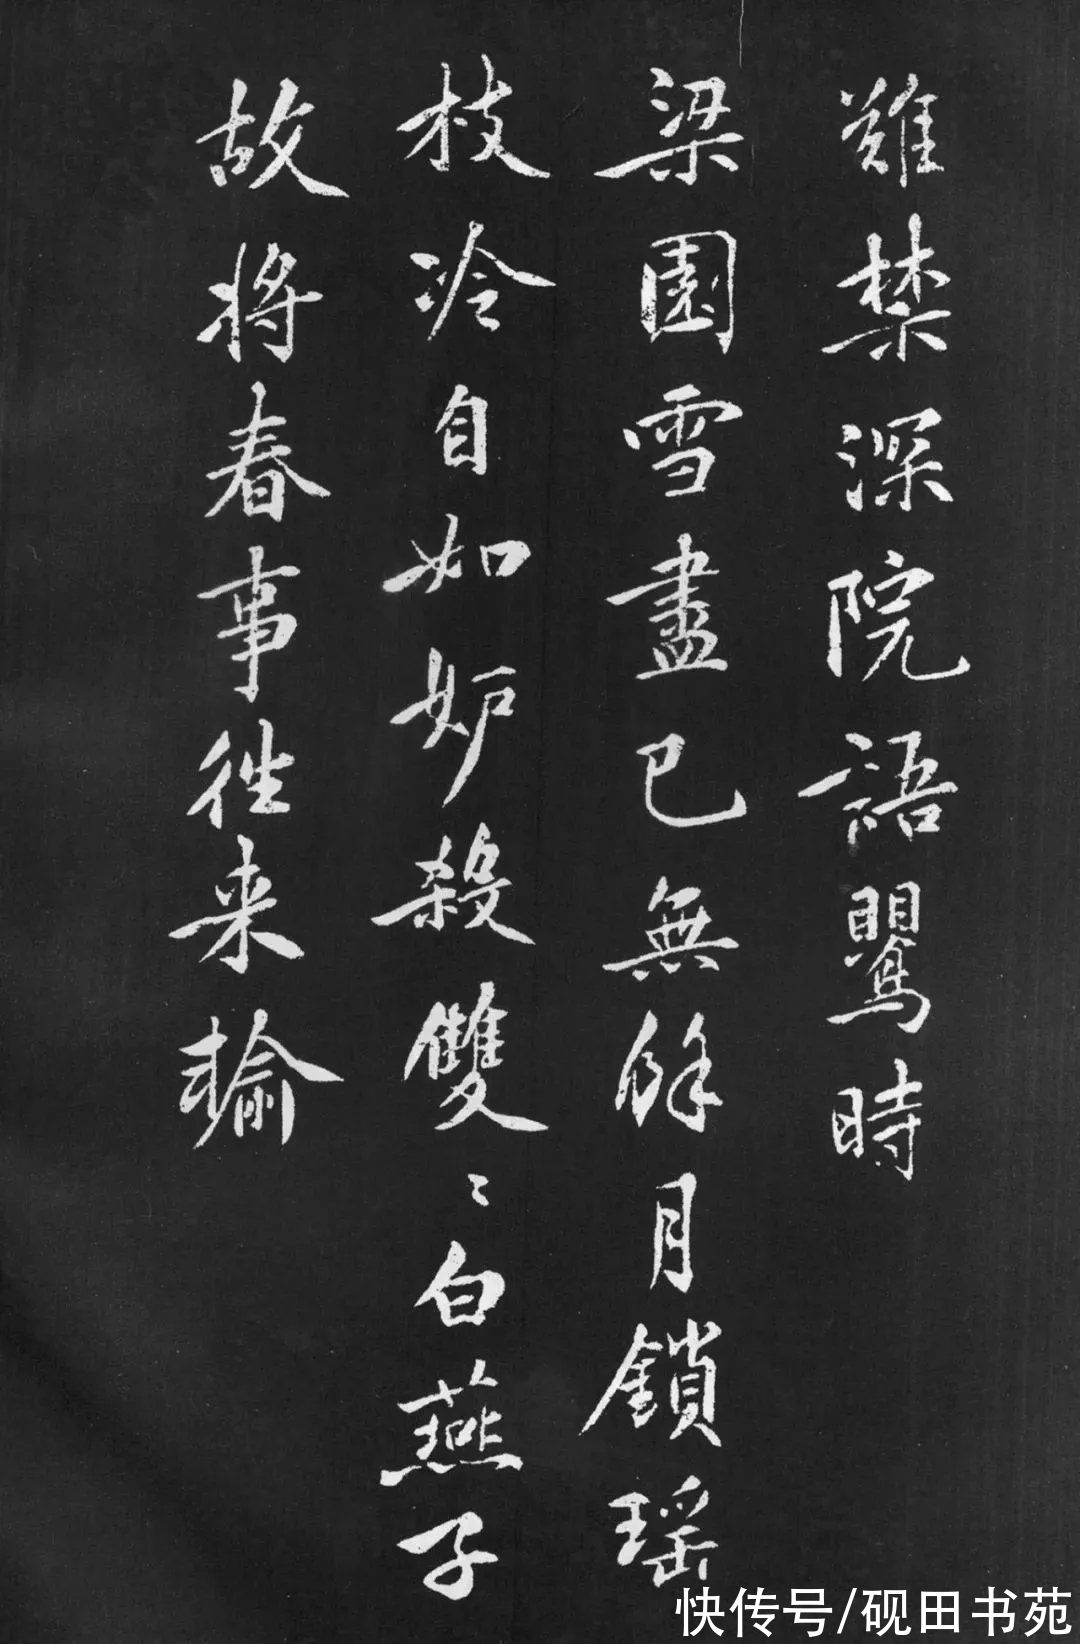 難禁深院語鸎時
梁園雪盡已無餘月鎖瑶
枝冷自如妒殺雙〻白燕子
故将春事往来輸
快传号/砚田书苑